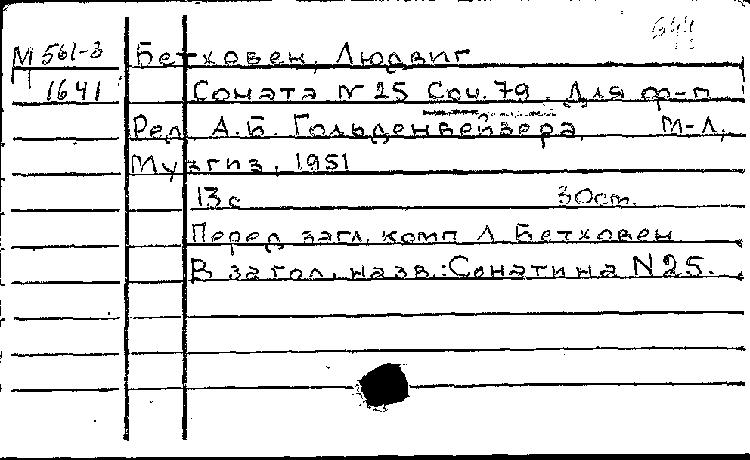 М 561-3 Бетховен, Людвиг
1641 Соната № 25 Соч. 79. Для ф-п
Ред. А.Б. Гольденвейзера, М-Л,
Музгиз, 1951
13с 30см.
Перед загл. комп Л. Бетховен
В загол. назв.: Сонатина N 25.